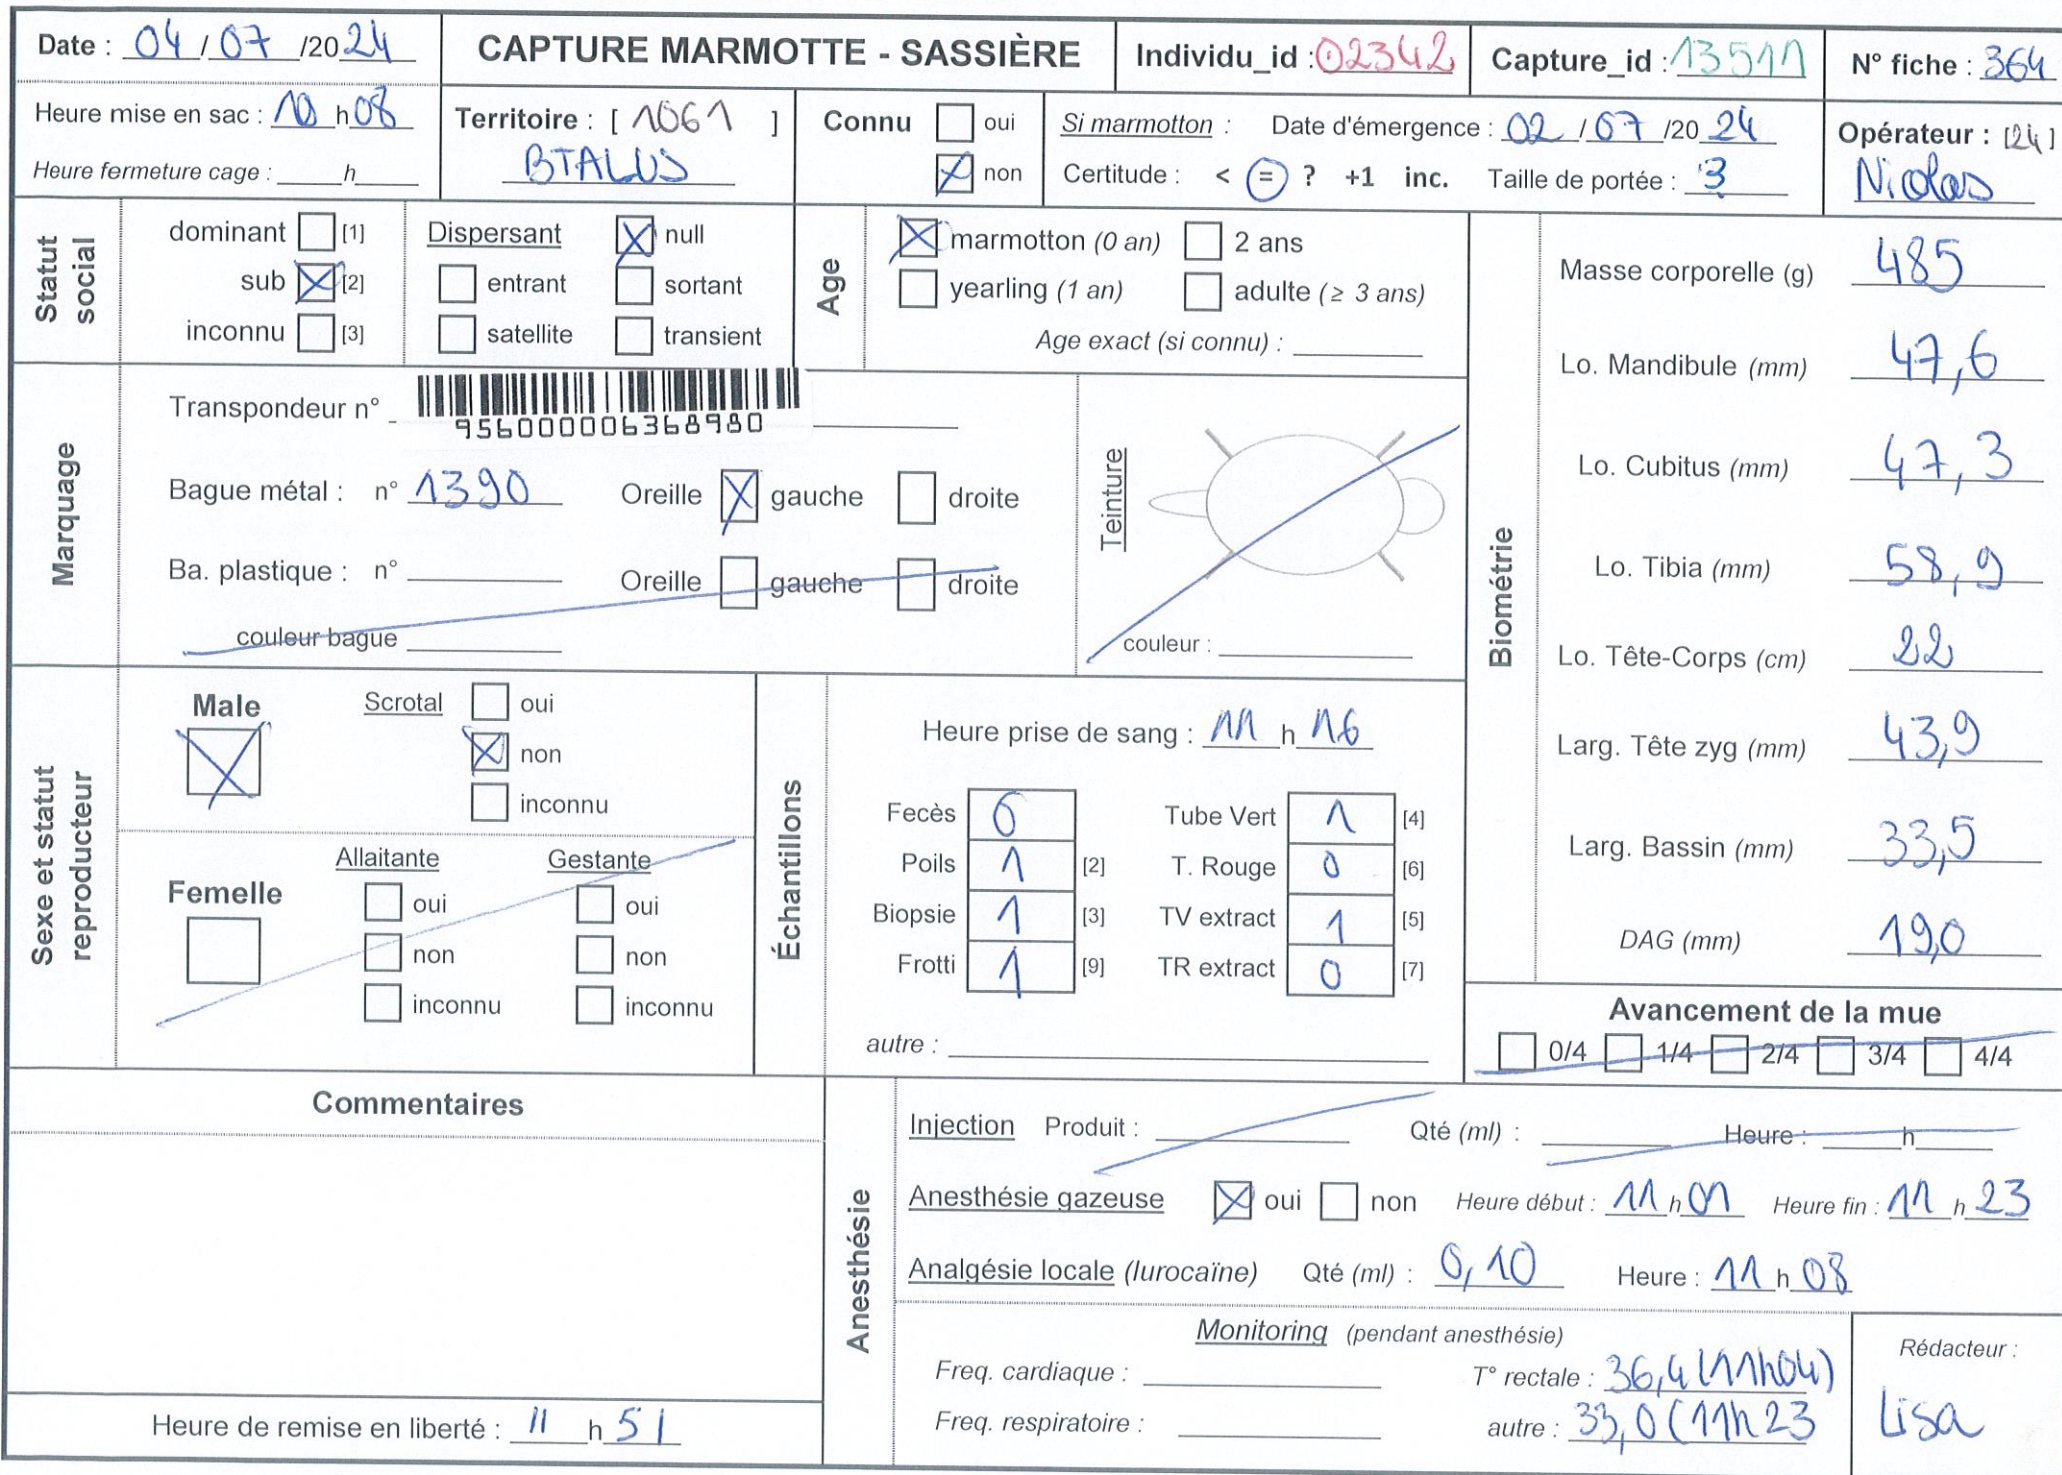 Date : 04 / 07 /20 24
CAPTURE MARMOTTE - SASSIÈRE
Individu_id : 02342
Capture_id : 13511
N° fiche : 364
Heure mise en sac : 10 h 08
Heure fermeture cage : ____h____
Territoire : [ 1061 ]
BTALUS
Connu oui
non
Si marmotton : Date d'émergence : 02 / 07 /20 24
Certitude : < = ? +1 inc. Taille de portée : 3
Opérateur : [24]
Nicolas
Statut social
dominant [1]
sub [2]
inconnu [3]
Dispersant null
entrant sortant
satellite transient
Age
marmotton (0 an) 2 ans
yearling (1 an) adulte (≥ 3 ans)
Age exact (si connu) :
Marquage
Transpondeur n°
956000006368980
Bague métal : n° 1390 Oreille gauche droite
Ba. plastique : n° Oreille gauche droite
couleur bague
Teinture
couleur :
Biométrie
Masse corporelle (g) 485
Lo. Mandibule (mm) 47,6
Lo. Cubitus (mm) 47,3
Lo. Tibia (mm) 58,9
Lo. Tête-Corps (cm) 22
Larg. Tête zyg (mm) 43,9
Larg. Bassin (mm) 33,5
DAG (mm) 19,0
Sexe et statut reproducteur
Male
Scrotal oui
non
inconnu
Femelle
Allaitante Gestante
oui oui
non non
inconnu inconnu
Échantillons
Heure prise de sang : 11 h 16
Fecès 0 Tube Vert 1 [4]
Poils 1 [2] T. Rouge 0 [6]
Biopsie 1 [3] TV extract 1 [5]
Frotti 1 [9] TR extract 0 [7]
autre :
Avancement de la mue
0/4 1/4 2/4 3/4 4/4
Commentaires
Heure de remise en liberté : 11 h 51
Anesthésie
Injection Produit : Qté (ml) : Heure : ____h____
Anesthésie gazeuse oui non Heure début : 11 h 01 Heure fin : 11 h 23
Analgésie locale (lurocaïne) Qté (ml) : 0,10 Heure : 11 h 08
Monitoring (pendant anesthésie)
Freq. cardiaque : T° rectale : 36,4 (11h04)
Freq. respiratoire : autre : 33,0 (11h23
Rédacteur :
Lisa